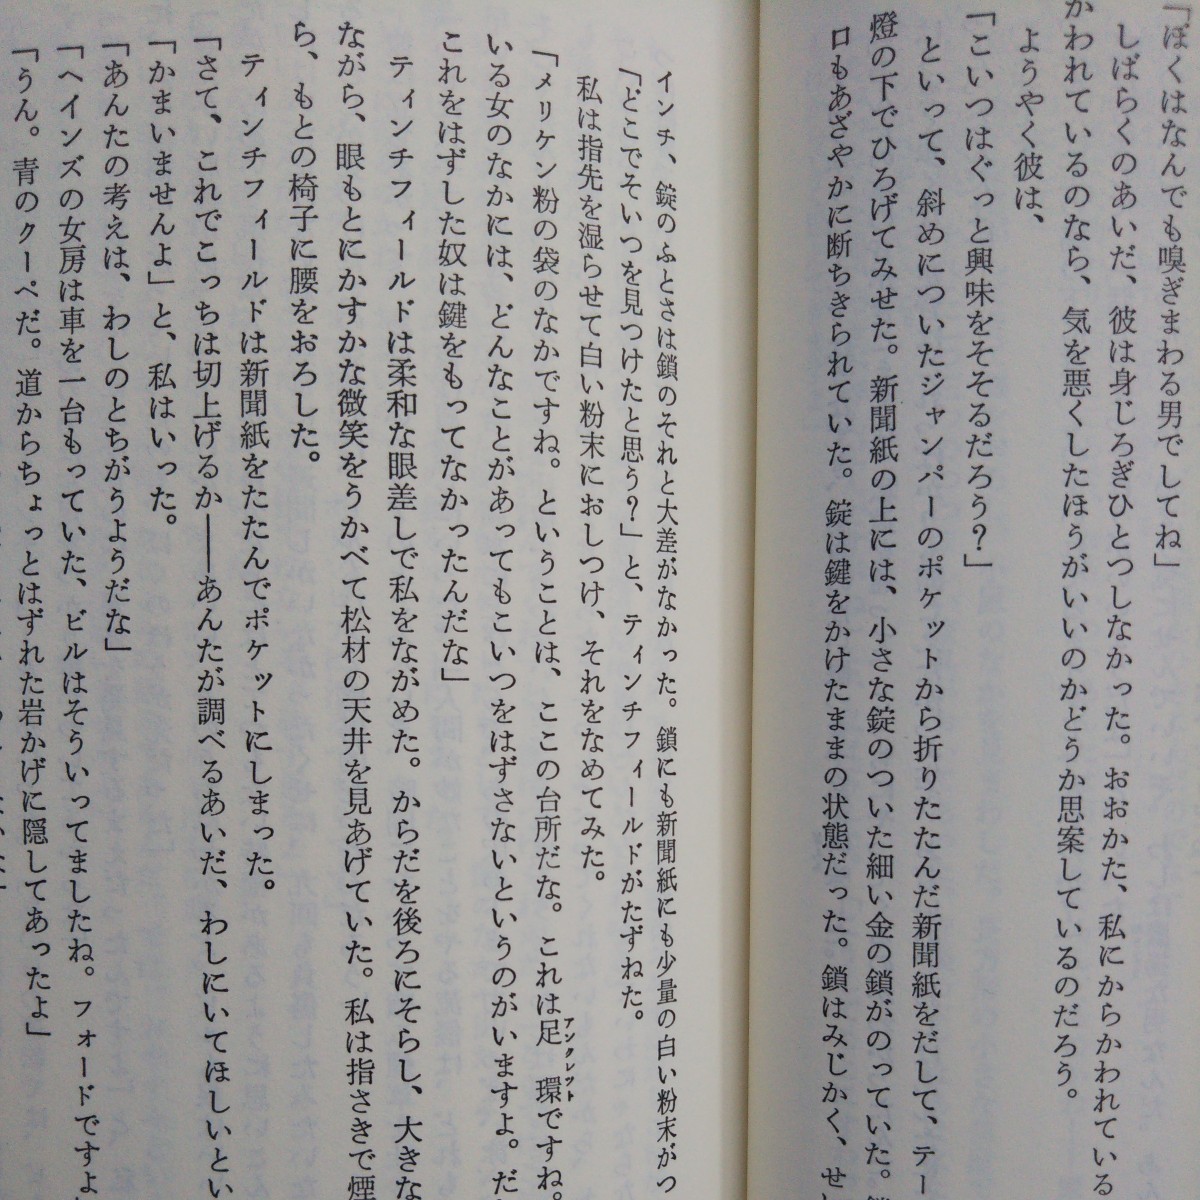 「ぼくはなんでも嗅ぎまわる男でしてね」
しばらくのあいだ、彼は身じろぎひとつしなかった。おおかた、私にからかわれている
かわれているのなら、気を悪くしたほうがいいのかどうか思案しているのだろう。
ようやく彼は、
「こいつはぐっと興味をそそるだろう？」
といって、斜めについたジャンパーのポケットから折りたたんだ新聞紙をだして、テー
燈の下でひろげてみせた。新聞紙の上には、小さな錠のついた細い金の鎖がのっていた。
口もあざやかに断ちきられていた。錠は鍵をかけたままの状態だった。鎖はみじかく、せい
インチ、錠のふとさは鎖のそれと大差がなかった。鎖にも新聞紙にも少量の白い粉末がつ
「どこでそいつを見つけたと思う？」と、ティンチフィールドがたずねた。
私は指先を湿らせて白い粉末におしつけ、それをなめてみた。
「メリケン粉の袋のなかですね。ということは、ここの台所だな。これは足環アンクレットですね。
いる女のなかには、どんなことがあってもこいつをはずさないというのがいますよ。だ
これをはずした奴は鍵をもってなかったんだな」
ティンチフィールドは柔和な眼差しで私をながめた。からだを後ろにそらし、大きな
ながら、眼もとにかすかな微笑をうかべて松材の天井を見あげていた。私は指さきで煙
ら、もとの椅子に腰をおろした。
ティンチフィールドは新聞紙をたたんでポケットにしまった。
「さて、これでこっちは切上げるか――あんたが調べるあいだ、わしにいてほしいとい
「かまいませんよ」と、私はいった。
「あんたの考えは、わしのとちがうようだな」
「ヘインズの女房は車を一台もっていた、ビルはそういってましたね。フォードですよ」
「うん。青のクーペだ。道からちょっとはずれた岩かげに隠してあったよ」